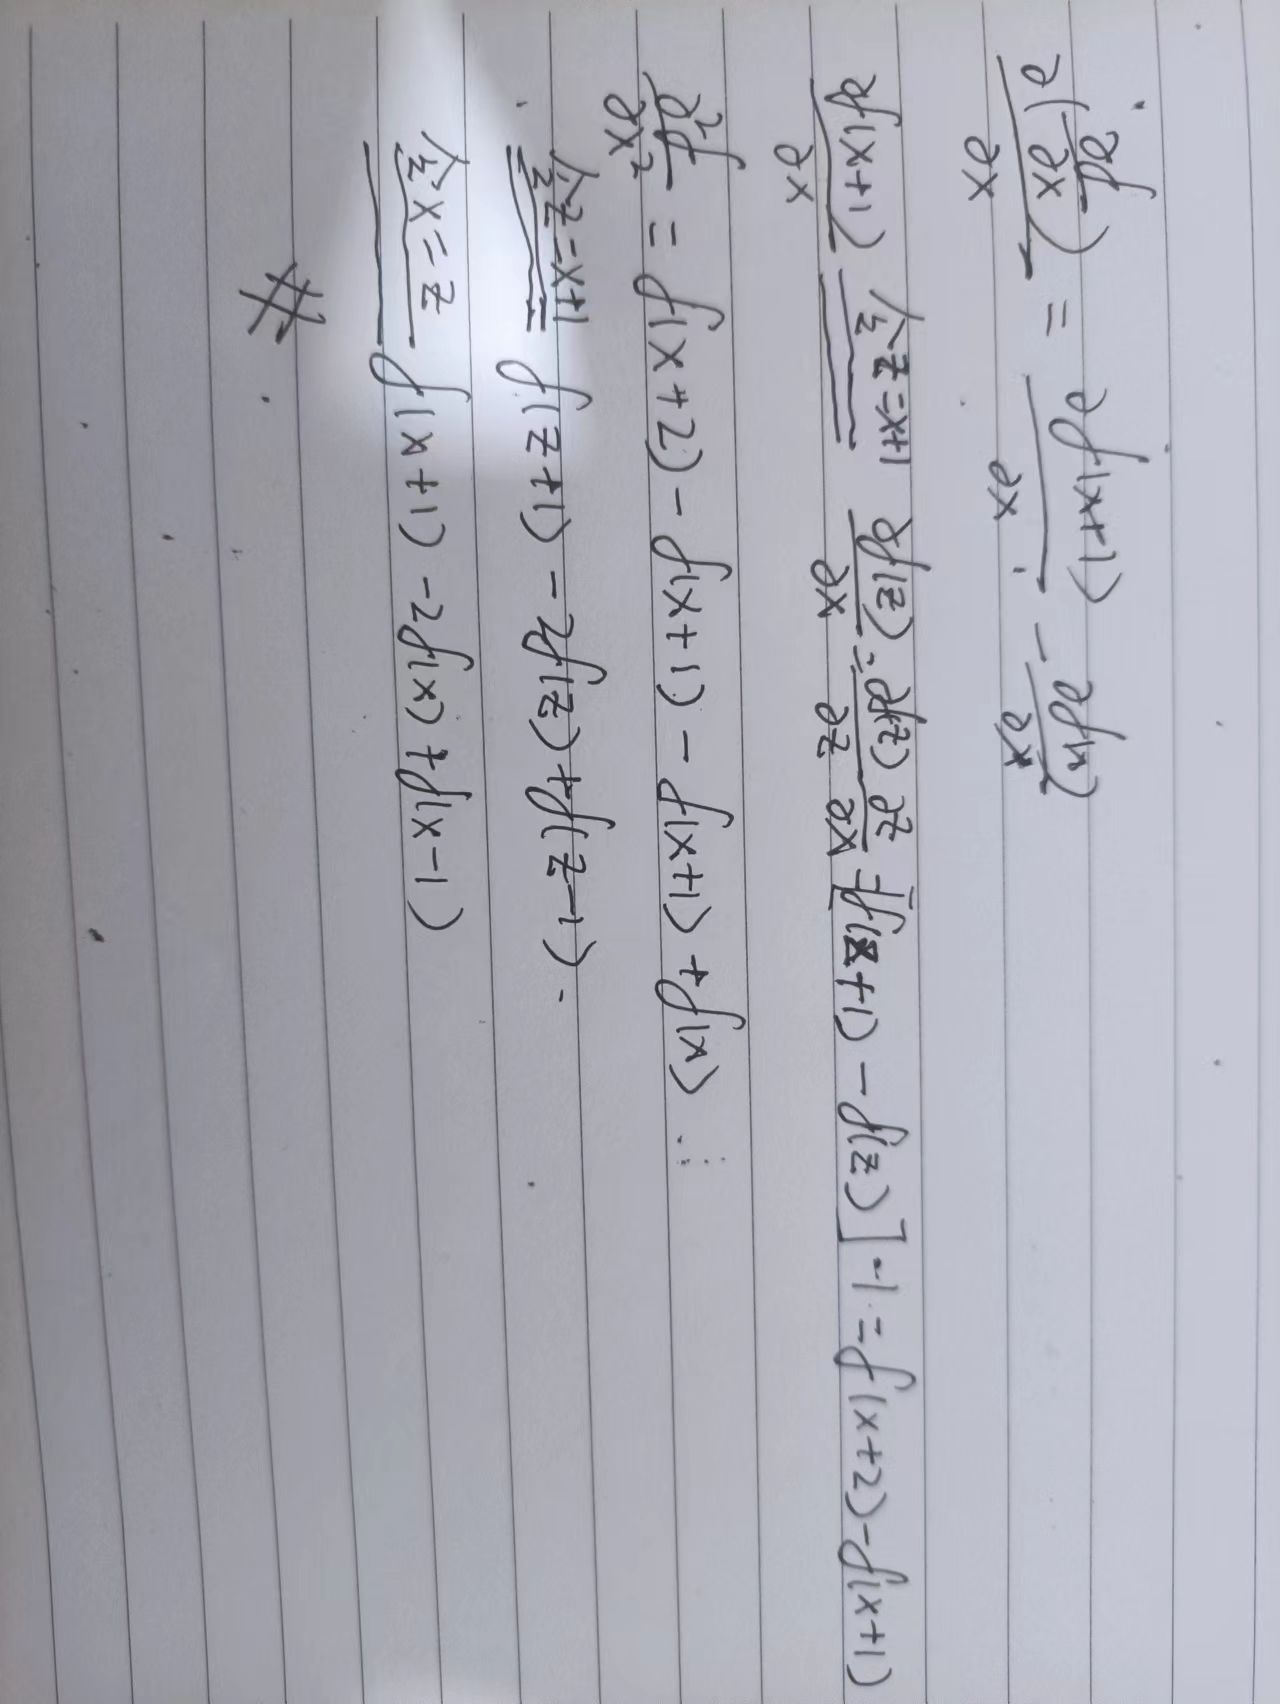 ∂(∂f/∂x)/∂x = ∂f(x+1)/∂x - ∂f(x)/∂x
∂f(x+1)/∂x 令z=x+1 ∂f(z)/∂x = ∂f(z)/∂z ∂z/∂x = [f(z+1) - f(z)]·1 = f(x+2) - f(x+1)
∂²f/∂x² = f(x+2) - f(x+1) - f(x+1) + f(x)
令z=x+1 = f(z+1) - 2f(z) + f(z-1).
令x=z f(x+1) - 2f(x) + f(x-1)
#